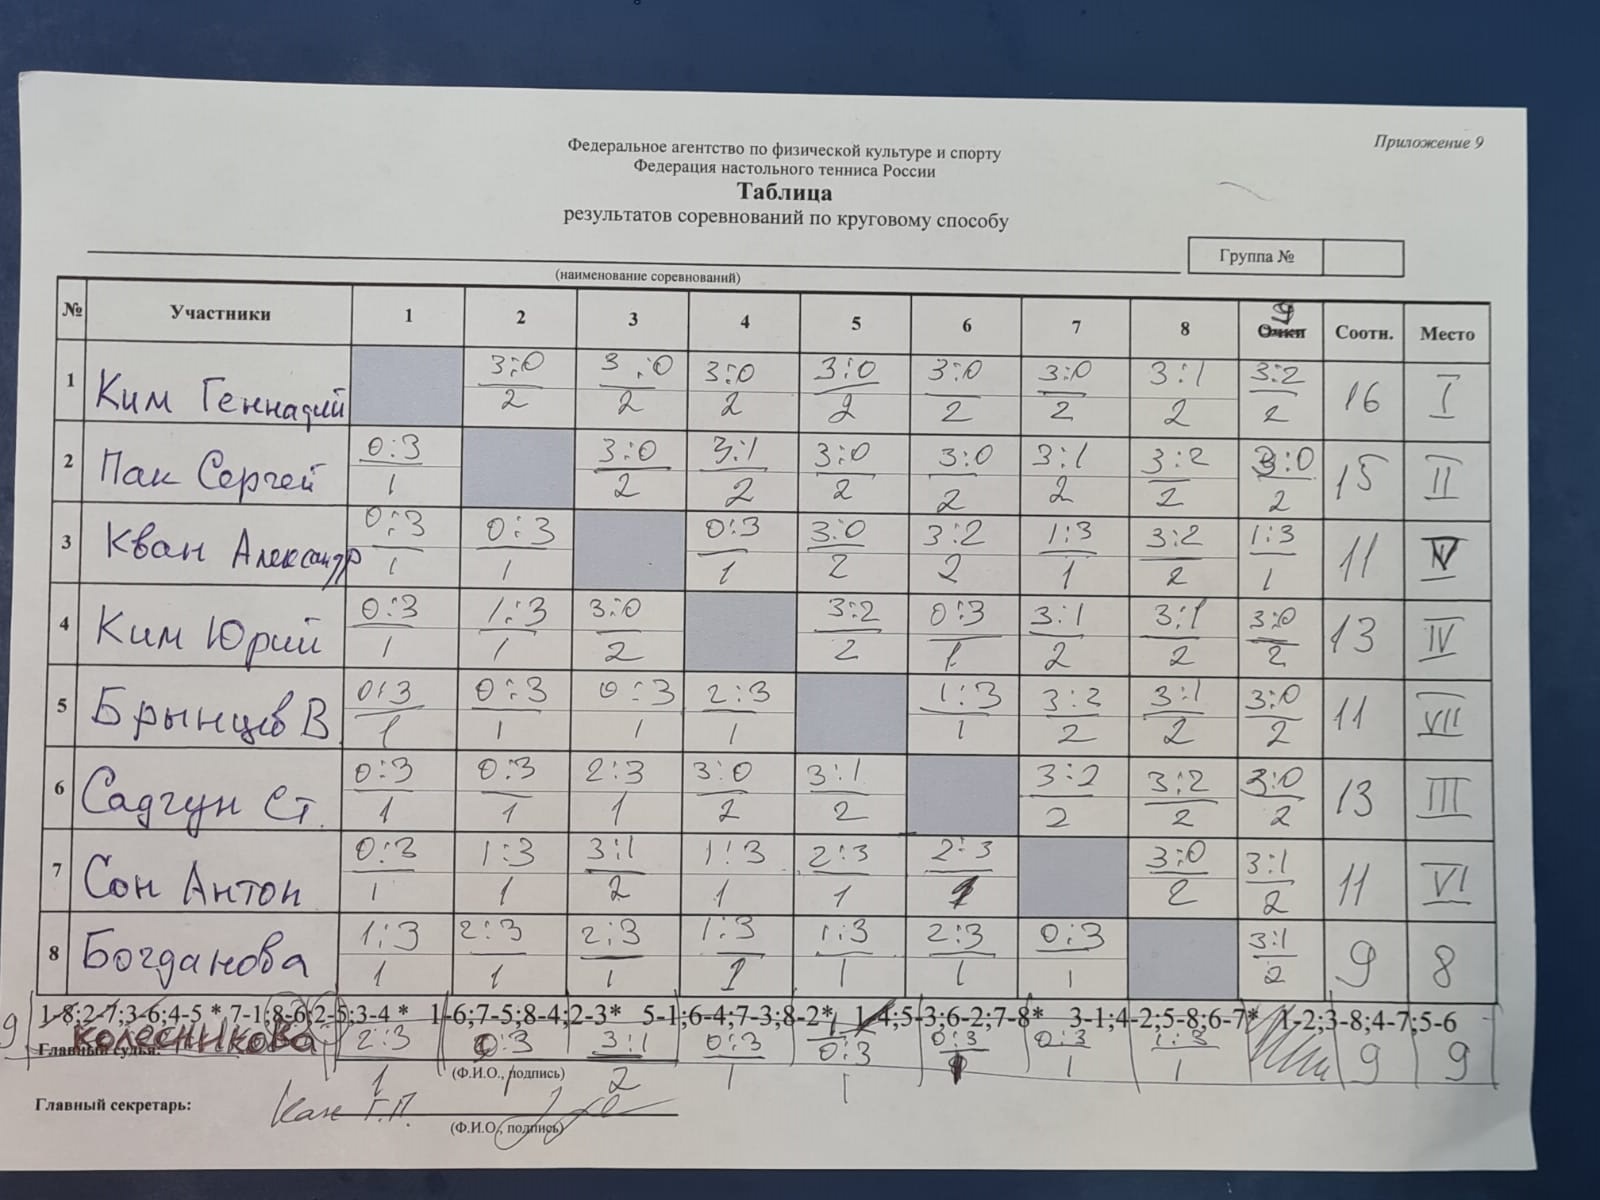 Приложение 9
Федеральное агентство по физической культуре и спорту
Федерация настольного тенниса России
Таблица
результатов соревнований по круговому способу
Группа №
(наименование соревнований)
№ Участники 1 2 3 4 5 6 7 8 9 Очки Соотн. Место
1 Ким Геннадий 3:0 3:0 3:0 3:0 3:0 3:0 3:1 3:2 16 I
2 2 2 2 2 2 2 2
2 Пак Сергей 0:3 3:0 3:1 3:0 3:0 3:1 3:2 3:0 15 II
1 2 2 2 2 2 2 2
3 Кван Александр 0:3 0:3 0:3 3:0 3:2 1:3 3:2 1:3 11 V
1 1 1 2 2 1 2 1
4 Ким Юрий 0:3 1:3 3:0 3:2 0:3 3:1 3:1 3:0 13 IV
1 1 2 2 1 2 2 2
5 Брынцев В. 0:3 0:3 0:3 2:3 1:3 3:2 3:1 3:0 11 VII
1 1 1 1 1 2 2 2
6 Садгун Ст. 0:3 0:3 2:3 3:0 3:1 3:2 3:2 3:0 13 III
1 1 1 2 2 2 2 2
7 Сон Антон 0:3 1:3 3:1 1:3 2:3 2:3 3:0 3:1 11 VI
1 1 2 1 1 1 2 2
8 Богданова 1:3 2:3 2:3 1:3 1:3 2:3 0:3 3:1 9 8
1 1 1 1 1 1 1 2
1-8;2-7;3-6;4-5 * 7-1;8-6;2-5;3-4 * 1-6;7-5;8-4;2-3* 5-1;6-4;7-3;8-2* 1-4;5-3;6-2;7-8* 3-1;4-2;5-8;6-7* 1-2;3-8;4-7;5-6
9 Колесникова 2:3 0:3 3:1 0:3 0:3 0:3 0:3 1:3 9 9
Главный судья:
1 1 2 1 1 1 1 1
(Ф.И.О., подпись)
Главный секретарь: Кан Г.П.
(Ф.И.О., подпись)